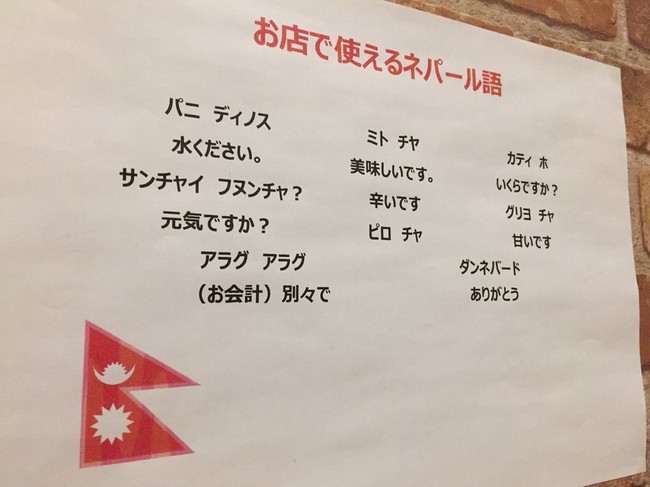 お店で使えるネパール語
パニ ディノス
水ください。
サンチャイ フヌンチャ？
元気ですか？
アラグ アラグ
（お会計）別々で
ミト チヤ
美味しいです。
辛いです
ピロ チヤ
カティ ホ
いくらですか？
グリヨ チヤ
甘いです
ダンネバード
ありがとう